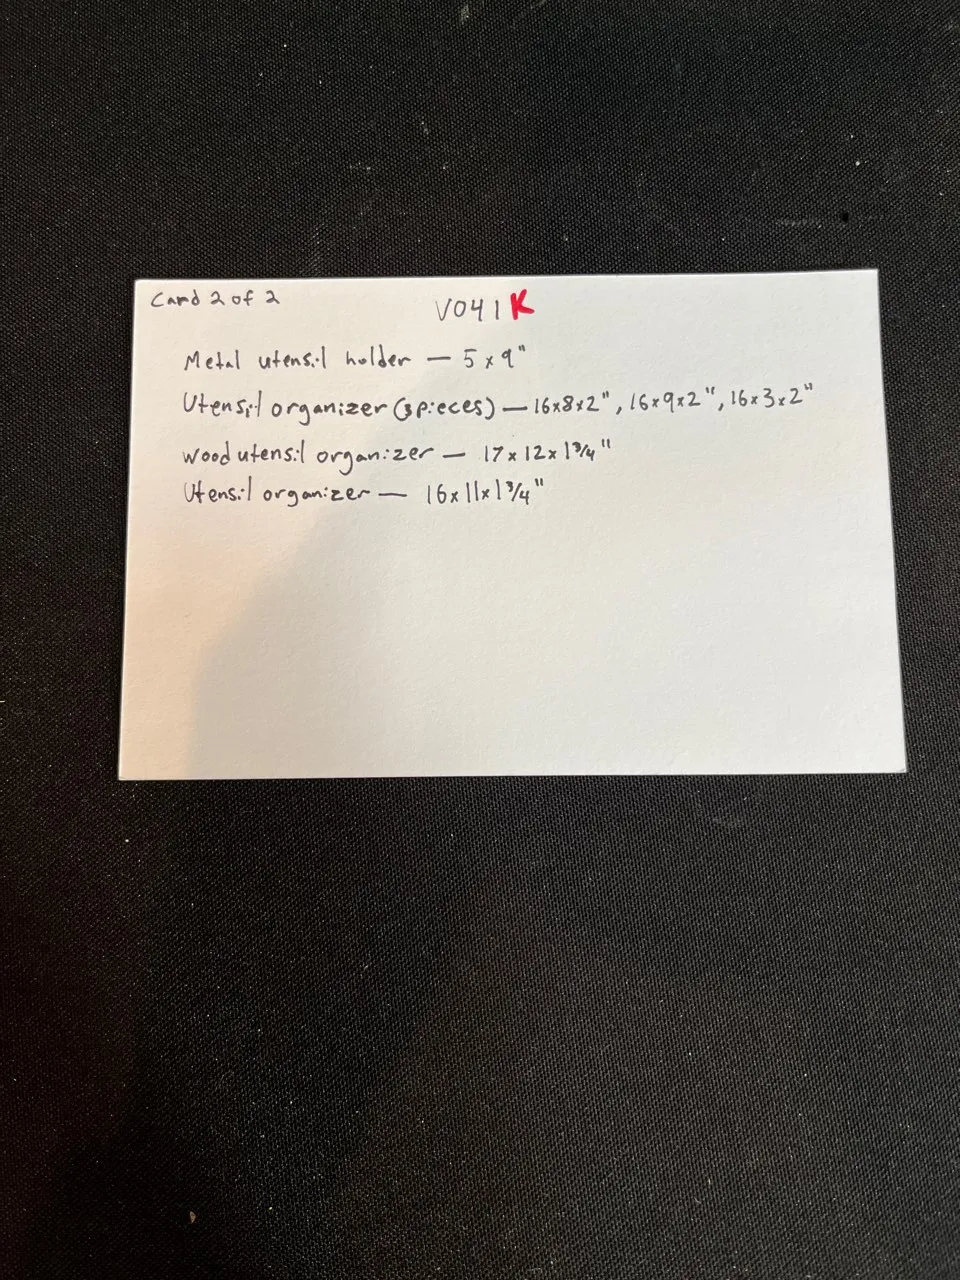 Card 2 of 2
V041K
Metal utensil holder — 5 x 9"
Utensil organizer (3 pieces) — 16x8x2", 16x9x2", 16x3x2"
wood utensil organizer — 17 x 12 x 1 3/4"
Utensil organizer — 16x11x1 3/4"